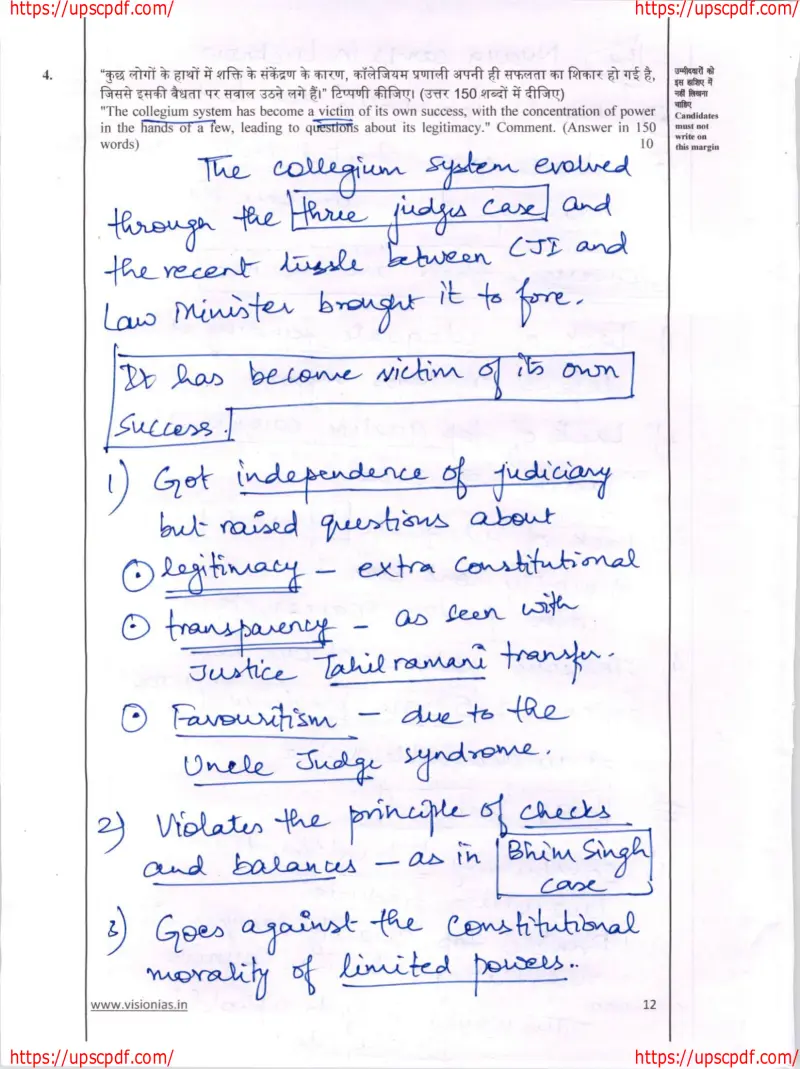 https://upscpdf.com/ https://upscpdf.com/
4. "कुछ लोगों के हाथों में शक्ति के संकेंद्रण के कारण, कॉलेजियम प्रणाली अपनी ही सफलता का शिकार हो गई है,
जिससे इसकी वैधता पर सवाल उठने लगे हैं।" टिप्पणी कीजिए। (उत्तर 150 शब्दों में दीजिए)
"The collegium system has become a victim of its own success, with the concentration of power
in the hands of a few, leading to questions about its legitimacy." Comment. (Answer in 150
words) 10
उम्मीदवारों को
इस हाशिए में
नहीं लिखना
चाहिए
Candidates
must not
write on
this margin
The collegium system evolved
through the three judges case and
the recent tussle between CJI and
Law Minister brought it to fore.
It has become victim of its own
success.
1) Got independence of judiciary
but raised questions about
legitimacy – extra constitutional
transparency – as seen with
Justice Tahilramani transfer.
Favouritism – due to the
Uncle Judge syndrome.
2) Violates the principle of checks
and balances – as in Bhim Singh
case
3) Goes against the constitutional
morality of limited powers.
www.visionias.in 12
https://upscpdf.com/ https://upscpdf.com/